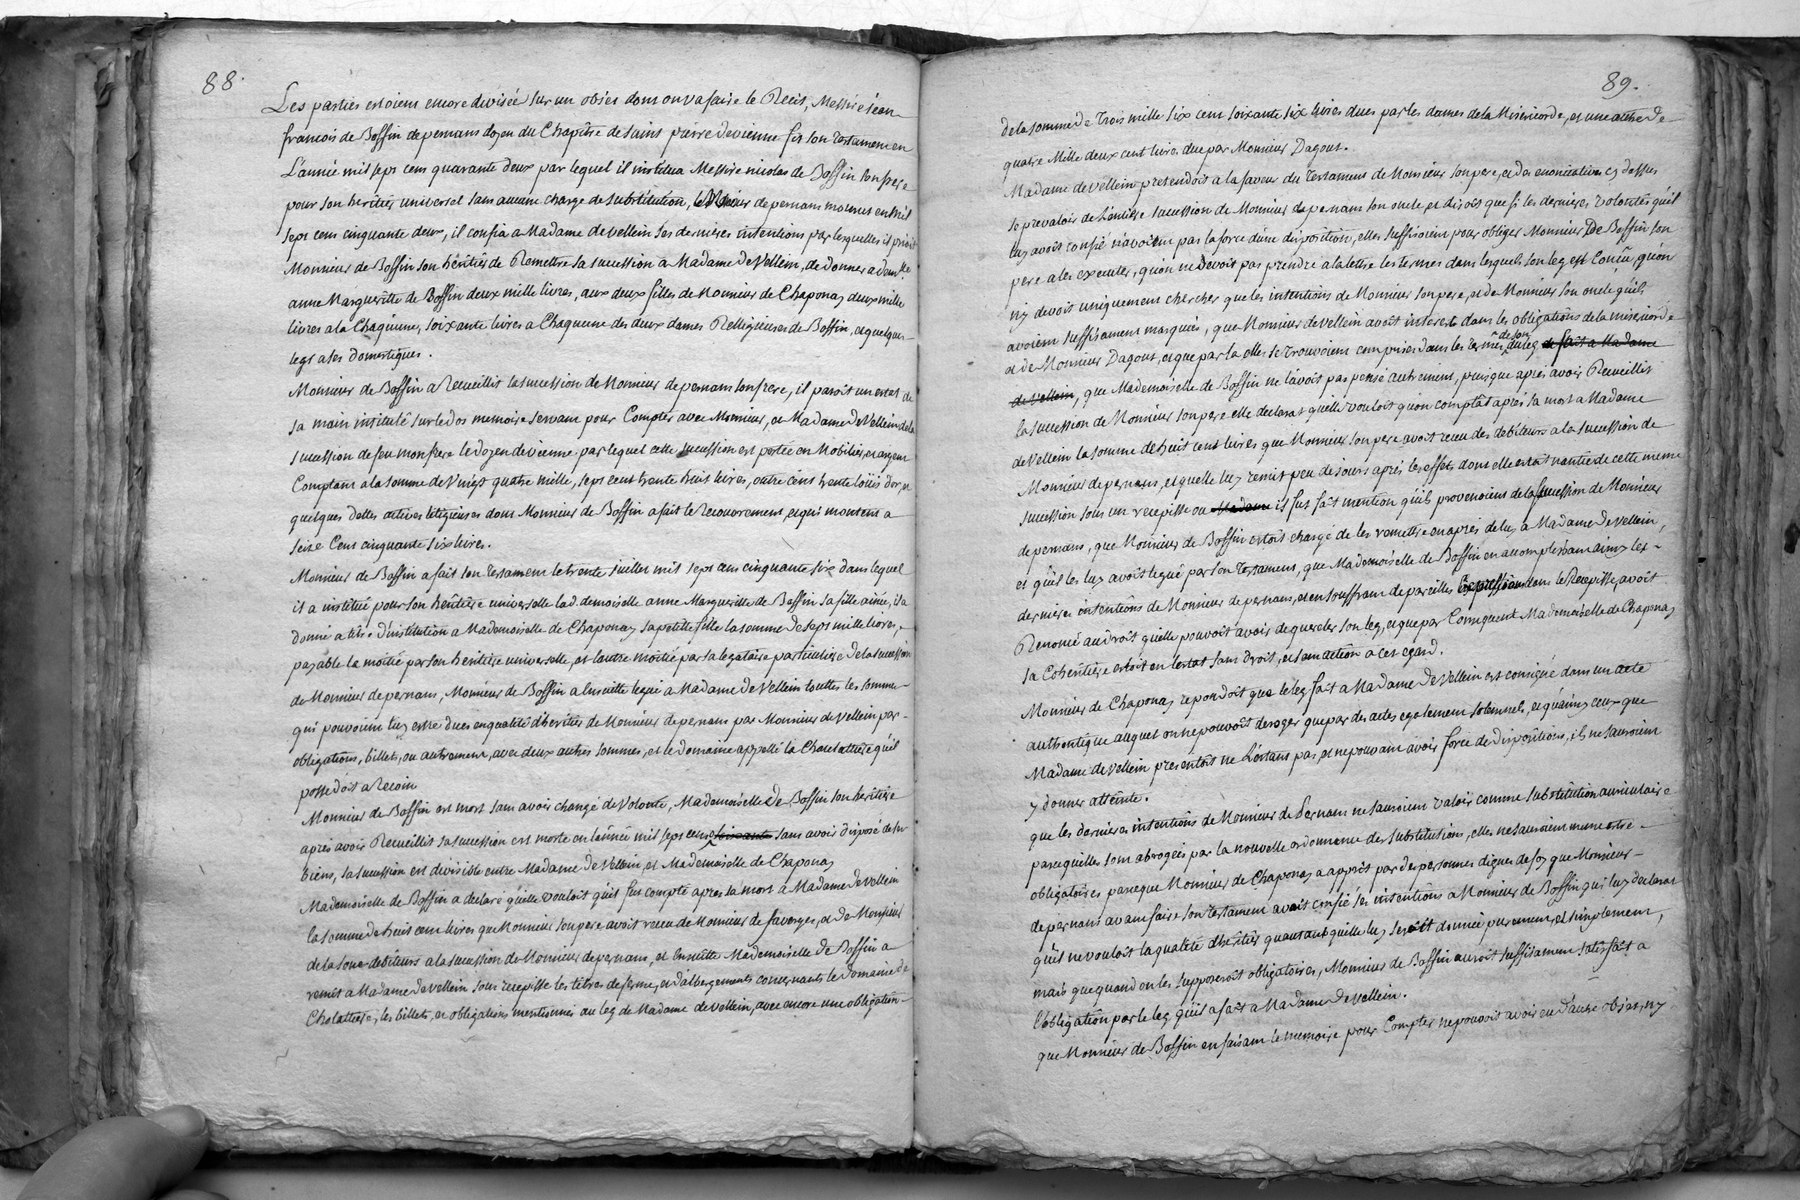 88.
Les parties estoient encore divisée sur un objet dont on va faire le Recit, Messire jean
francois de Boffin de pernans doyen du Chapitre de saint pierre de vienne fit son testament en
L'année mil sept cent quarante deux par lequel il institua Messire nicolas de Boffin son frere
pour son heritier universel sans aucune charge de substitution, le Monsieur de pernans mourut en mil
sept cent cinquante deux, il confia a Madame de vellein ses dernieres intentions par lesquelles il prioit
Monsieur de Boffin son héritier de Remettre sa sucession a Madame de Vellein, de donner a demlle
anne Margueritte de Boffin deux mille livres, aux deux filles de Monsieur de Chaponay deux mille
livres a la Chaqu'une, soixante livres a Chaqueune des deux dames Relligieuses de Boffin, et quelques
legs a ses domestiques.
Monsieur de Boffin a Recueillit la sucession de Monsieur de pernans son frere, il paroit un estat de
sa main intitulé sur le dos memoire servant pour Compter avec Monsieur, et Madame de Vellein de la
sucession de feu mon frere le doyen de vienne par lequel cette sucession est portée en Mobilier, et argent
Comptant a la somme de Vingt quatre mille, sept cent trente huit livres, outre cent trente loüis d'or, et
quelques dettes actives letigieuses dont Monsieur de Boffin a fait le Recouvrement, et qui montent a
seize Cent cinquante six livres.
Monsieur de Boffin a fait son testament le trente juillet mil sept cent cinquante six dans lequel
il a institué pour son héritière universelle lad. demoiselle anne Marguerite de Boffin sa fille ainée, il a
donné a titre d'institution a Mademoiselle de Chaponay sa petite fille la somme de sept mille livres,
payable la moitié par son heritière universelle, et l'autre moitié par sa legataire particuliere de la sucession
de Monsieur de pernans, Monsieur de Boffin a ensuitte legué a Madame de Vellein touttes les sommes
qui pouvoient luy estre dues en qualité d'héritier de Monsieur de pernans par Monsieur de Vellein par
obligations, billets, ou autrement, avec deux autres sommes, et le domaine appellé la Cholattiere qu'il
possedoit a Recoin
Monsieur de Boffin est mort sans avoir changé de Volonté, Mademoiselle de Boffin son héritière
après avoir Recueillit sa sucession est morte en l'année mil sept cent soixante sans avoir disposé de ses
biens, sa sucession est divisible entre Madame de Vellein, et Mademoiselle de Chaponay
Mademoiselle de Boffin a declaré qu'elle vouloit qu'il fut compté après sa mort a Madame de vellein
la somme de huit cent livres que Monsieur son pere avoit receu de Monsieur de faverges, et de Monsieur
de la sone debiteurs a la sucession de Monsieur de pernans, et ensuitte Mademoiselle de Boffin a
remit a Madame de vellein sous recepisse les titres de ferme, et d'albergements concernants le domaine de
Cholattiere, les billets, et obligations mentionnés au leg de Madame de vellein, avec encore une obligation
89.
de la somme de trois mille six cent soixante six livres dues par les dames de la Misericorde, et une autre de
quatre Mille deux cent livres due par Monsieur Dagout.
Madame de vellein pretendoit a la faveur du testament de Monsieur son pere, et des enonciations cy dessus
se prevaloir de l'entière sucession de Monsieur de pernans son oncle, et disoit que si les dernieres volontés qu'il
luy avoit confié n'avoient pas la force d'une disposition, elles suffisoient pour obliger Monsieur De Boffin son
pere a les executer, qu'on ne devoit pas prendre a la lettre les termes dans lesquels son leg est Conçû, qu'on
n'y devoit uniquement chercher que les intentions de Monsieur son pere, et de Monsieur son oncle qu'ils
avoient suffisament marquées, que Monsieur de vellein avoit interest dans les obligations de la misericorde
et de Monsieur Dagout, et que par la elles se trouvoient comprises dans les termes de son du leg et fait a Madame
de vellein, que Mademoiselle de Boffin ne l'avoit pas pensé autrement, puisque après avoir Recueillit
la sucession de Monsieur son pere elle declarat qu'elle vouloit qu'on comptât après sa mort a Madame
de Vellein la somme de huit cent livres que Monsieur son pere avoit receu des debiteurs a la sucession de
Monsieur de pernans, et qu'elle luy remit peu de jours après les effets dont elle estoit nantie de cette meme
sucession sous un recepisse ou Madame il fut fait mention qu'ils provenoient de la sucession de Monsieur
de pernans, que Monsieur de Boffin estoit chargé de les remettre en après de luy a Madame de vellein,
et qu'il les luy avoit legué par son testament, que Mademoiselle de Boffin en accomplissant ainsy les
dernieres intentions de Monsieur de pernans, et en souffrant de pareilles Expressions dans le Recepisse, avoit
Renoncé au droit qu'elle pouvoit avoir de quereler son leg, et que par Consequent Mademoiselle de Chaponay
sa Cohéritière estoit en l'estat sans droit, et sans action a cet egard.
Monsieur de Chaponay repondoit que le leg fait a Madame de Vellein est consigné dans un acte
authentique auquel on ne pouvoit deroger que par des actes egalement solemnels, et qu'ainsy ceux que
Madame de vellein presentoit ne l'estant pas, et ne pouvant avoir force de dispositions, ils ne sauroient
y donner atteinte.
que les dernieres intentions de Monsieur de Pernans ne sauroient valoir comme substitution auriculaire
parcequ'elles sont abrogées par la nouvelle ordonnance des substitutions, elles ne sauroient meme estre
obligatoires parceque Monsieur de Chaponay a apprit par des personnes dignes de foy que Monsieur
de pernans avant faire son testament avoit confié ses intentions a Monsieur de Boffin qui luy declarat
qu'il ne vouloit la qualité d'héritier qu'autant qu'elle luy seroit donnée purement, et simplement,
mais que quand on les supposeroit obligatoires, Monsieur de Boffin auroit suffisament satisfait a
l'obligation par le leg qu'il a fait a Madame de Vellein.
que Monsieur de Boffin en faisant le memoire pour Compter ne pouvoit avoir eu d'autre objet, ny